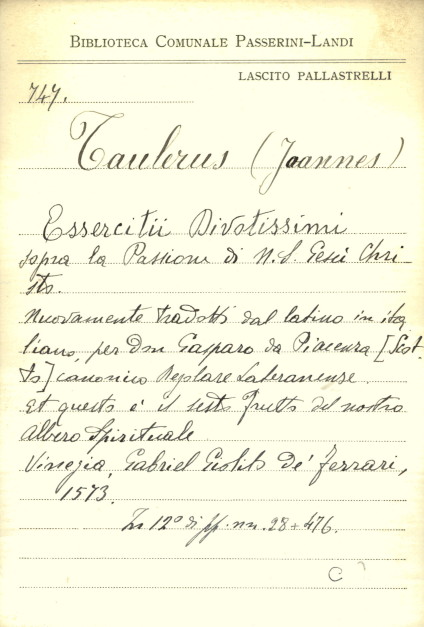 BIBLIOTECA COMUNALE PASSERINI-LANDI
LASCITO PALLASTRELLI
747.
Taulerus (Joannes)
Essercitii Divotissimi
sopra la Passione di N. S. Gesù Chri-
sto.
Nuovamente tradotti dal latino in ita
liano, per Don Gasparo da Piacenza [Scot-
to] canonico Regolare Lateranense.
Et questo è il sesto frutto del nostro
albero spirituale
Vinegia, Gabriel Giolito de' Ferrari,
1573.
In 12° di pp. nn. 28+476.
C